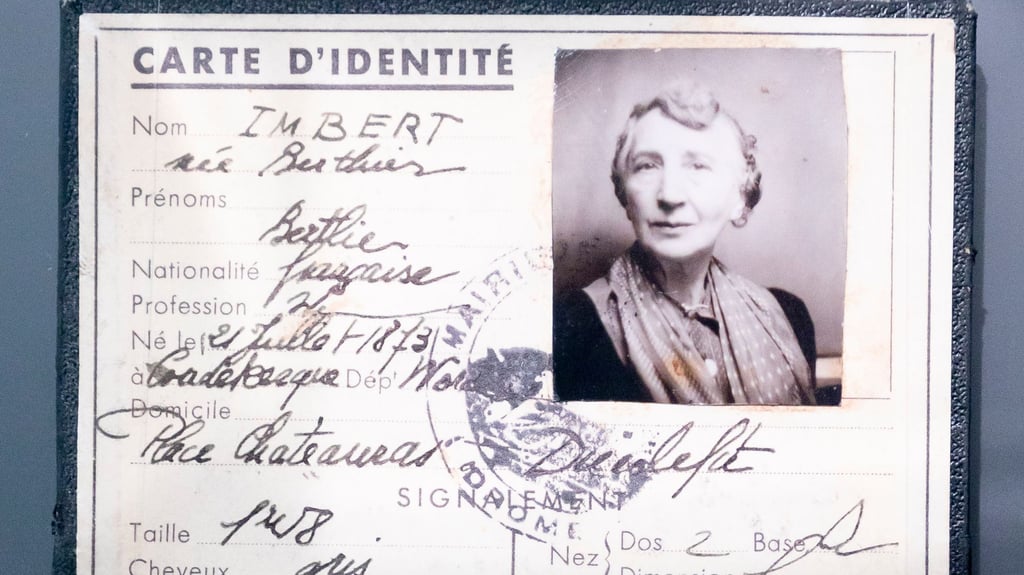 CARTE D'IDENTITÉ
Nom IMBERT
née Berthier
Prénoms
Berthe
Nationalité française
Profession
Né le 21 Juillet 1873
à Coudekerque Dépt Nord
Domicile
Place Chateauras Dieulefit
MAIRIE
DROME
SIGNALEMENT
Taille 1m58
Nez Dos 2 Base
Cheveux gris Dimension